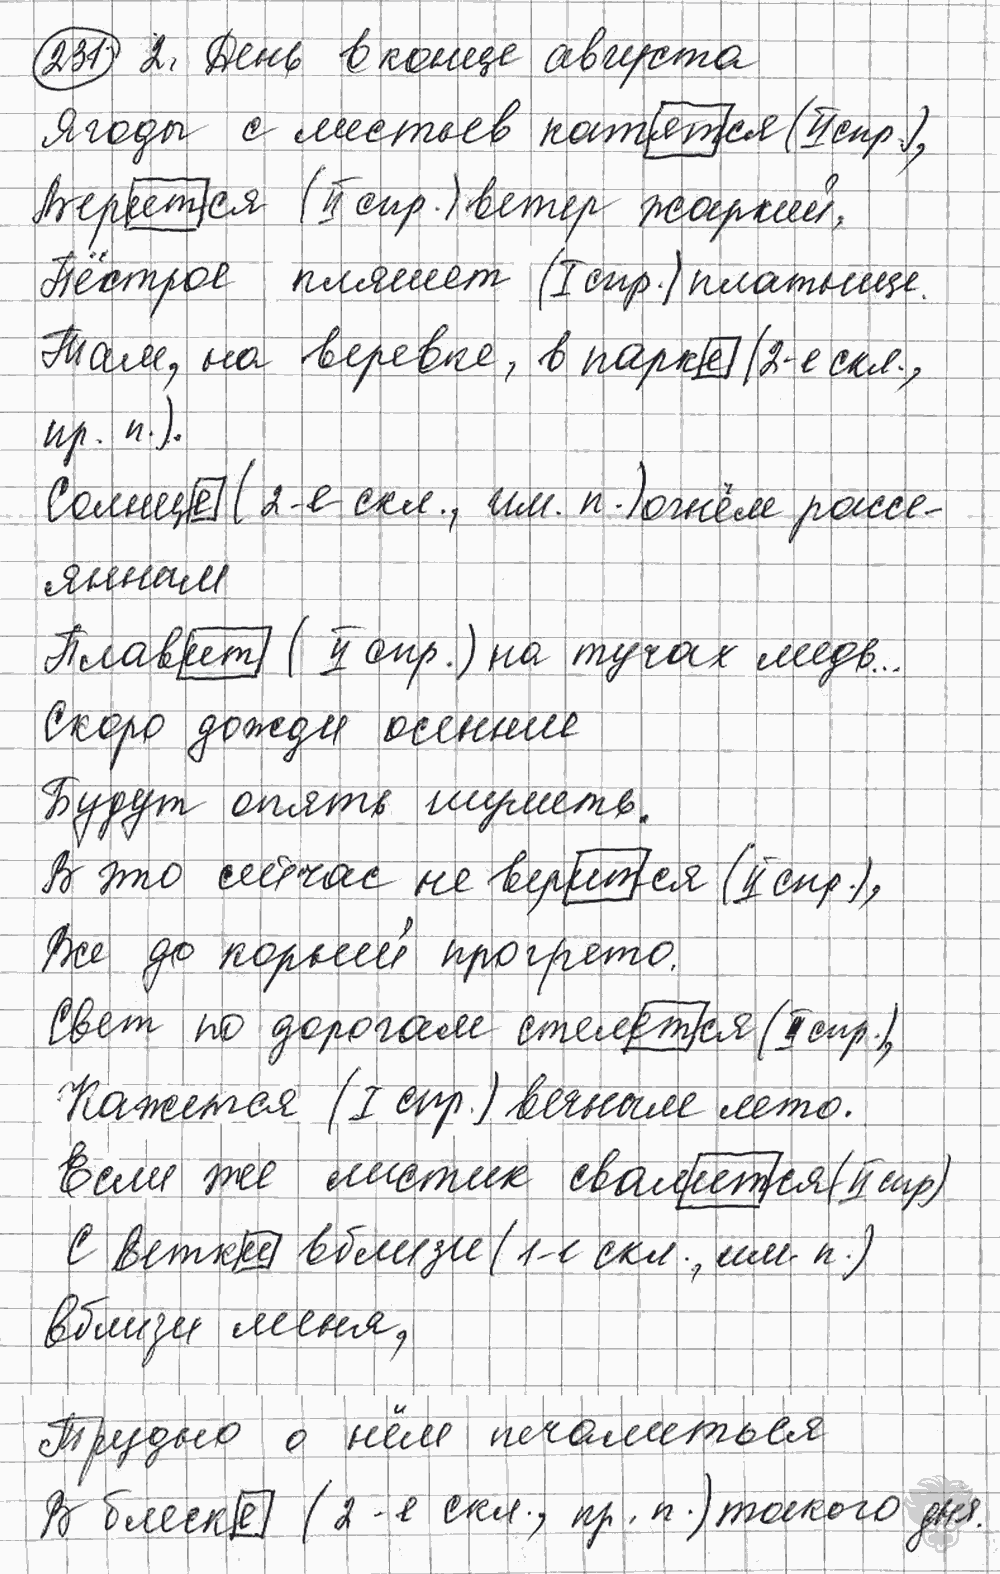 231 2. День в конце августа
Ягоды с листьев катятся (II спр.),
Верится (II спр.) ветер жаркий,
Пёстрое пляшет (I спр.) платьице
Там, на веревке, в парке (2-е скл.,
пр. п.).
Солнце (2-е скл., им. п.) огнём рассе-
янным
Плавит (II спр.) на тучах медь...
Скоро дожди осенние
Будут опять шуметь.
В это сейчас не верится (II спр.),
Все до корней прогрето.
Свет по дорогам стелется (II спр.),
Кажется (I спр.) вечным лето.
Если же листик свалится (II спр)
С ветки вблизи (1-е скл., им. п.)
вблизи меня,
Трудно о нём печалиться
В блеске (2-е скл., пр. п.) такого дня.